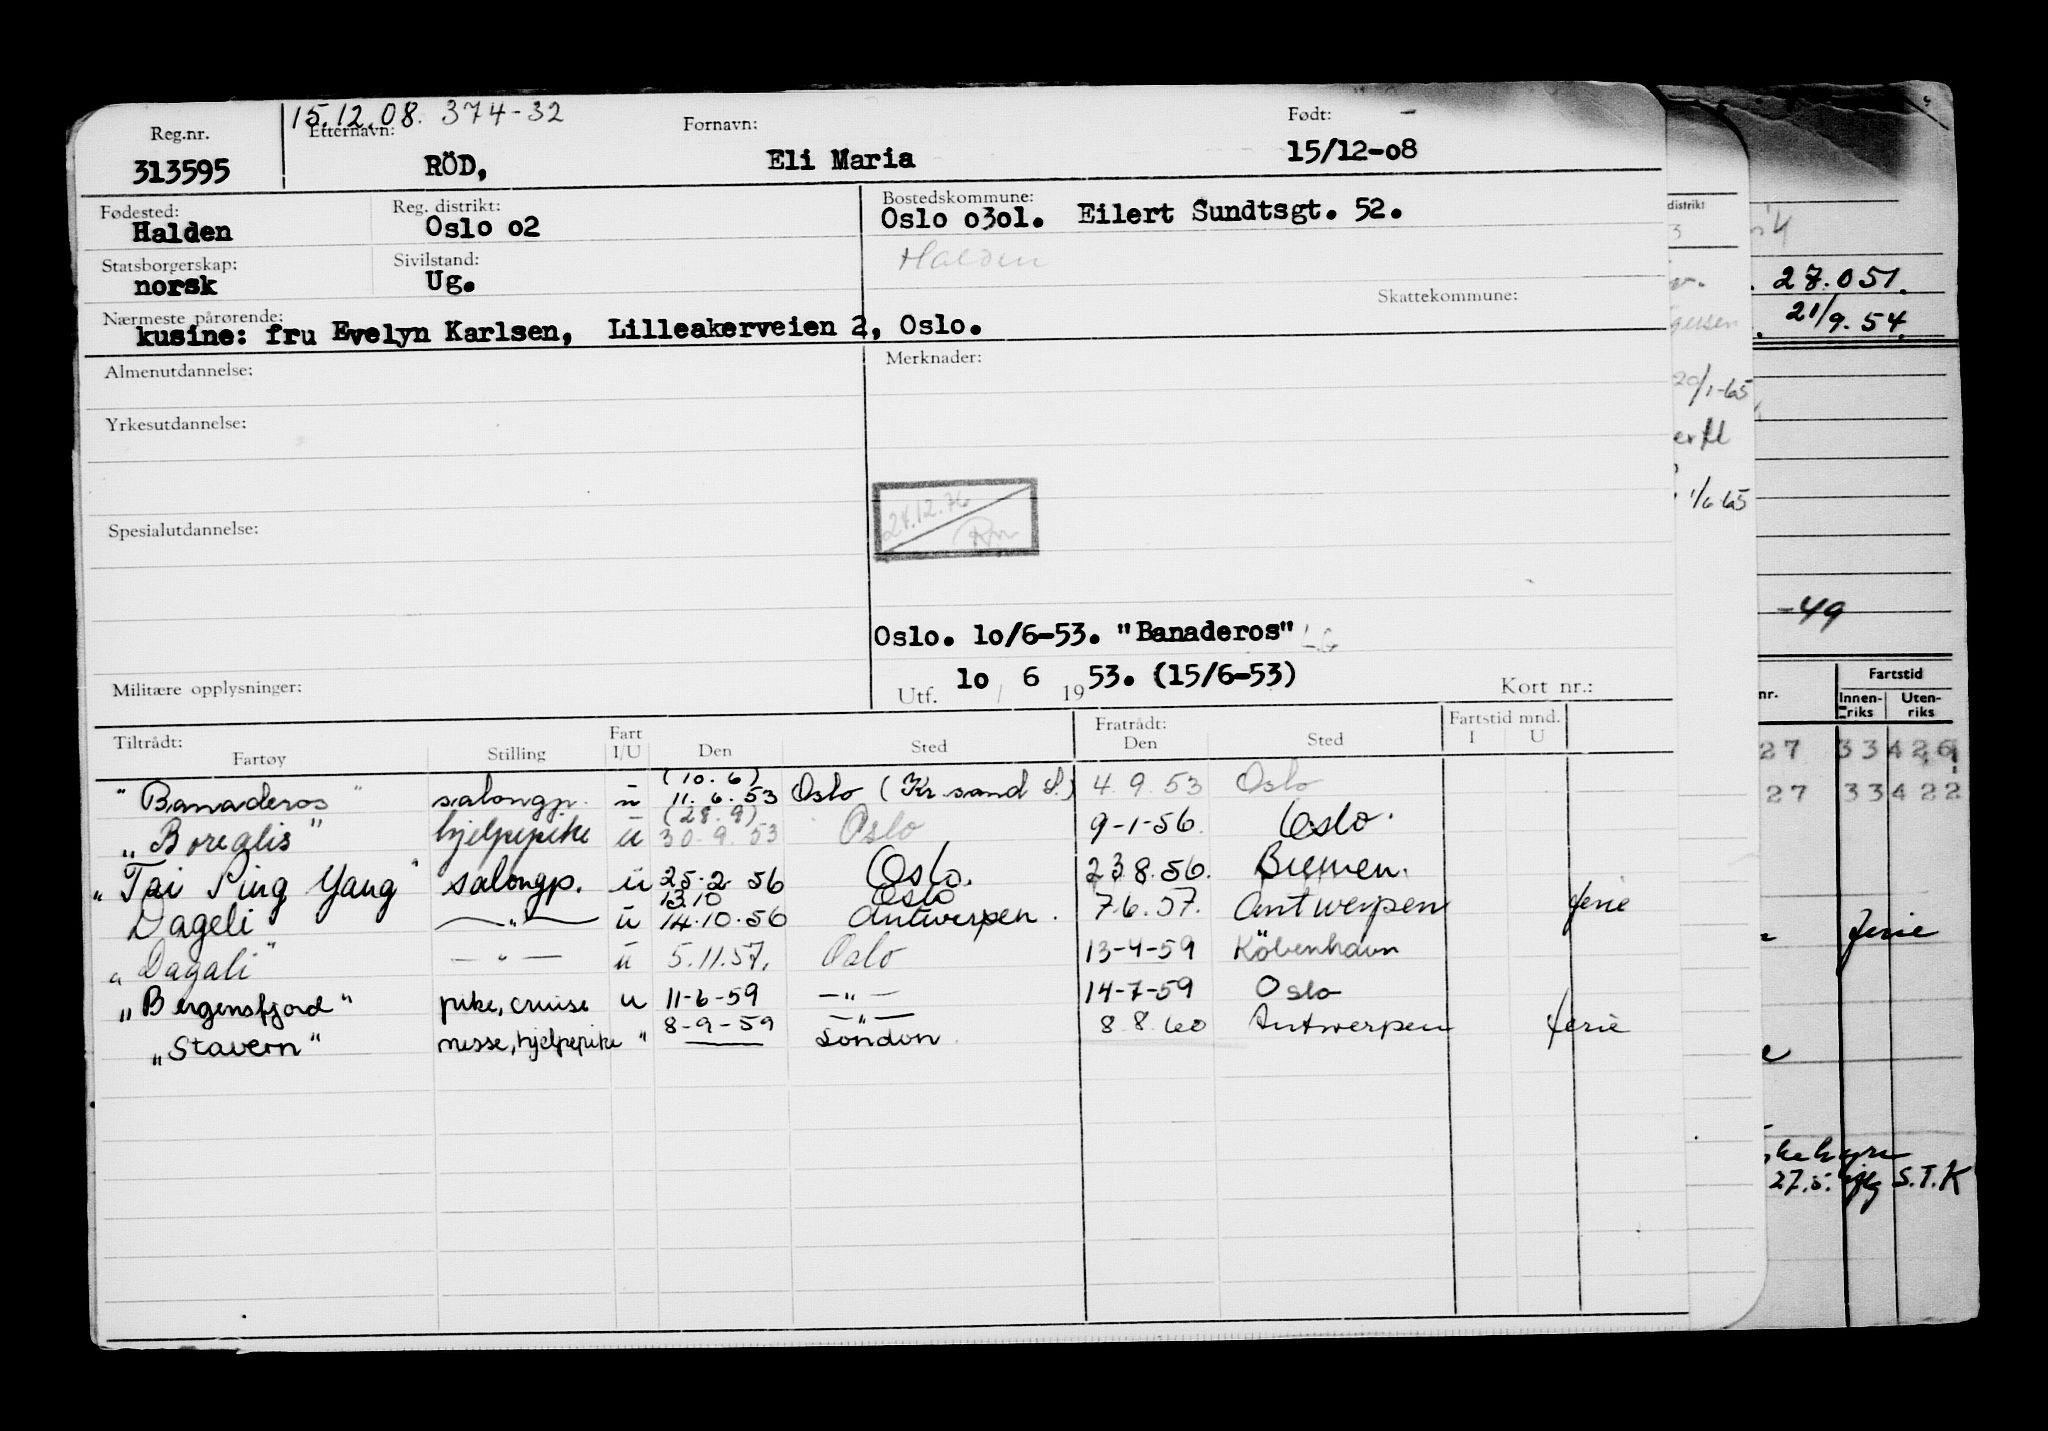 15.12.08. 374-32
Reg.nr. Etternavn: Fornavn: Født: -
313595 RÖD, Eli Maria 15/12-o8
Fødested: Reg. distrikt: Bostedskommune:
Halden Oslo o2 Oslo o3ol. Eilert Sundtsgt. 52.
Statsborgerskap: Sivilstand: Halden
norsk Ug.
Nærmeste pårørende: Skattekommune:
kusine: fru Evelyn Karlsen, Lilleakerveien 2, Oslo.
Almenutdannelse: Merknader:
Yrkesutdannelse:
24.12.76
Spesialutdannelse:
Oslo. lo/6-53. "Banaderos"
Militære opplysninger: Utf. lo / 6 1953. (15/6-53) Kort nr.:
Tiltrådt: Fratrådt: Fartstid mnd.
Fartøy Stilling Fart I/U Den Sted Den Sted I U
(10.6)
"Banaderos" salongp. u 11.6.53 Oslo (Kr.sand S.) 4.9.53 Oslo
(28.9)
"Borealis" hjelpepike u 30.9.53 Oslo 9-1-56. Oslo.
"Tai Ping Yang" salongp. u 25.2 56 Oslo. 23.8.56. Bremen.
13.10 Oslo
Dageli —"— u 14.10.56 Antwerpen. 7.6.57. Antwerpen ferie
"Dagali" —"— u 5.11.57. Oslo 13-4-59 Köbenhavn
"Bergensfjord" pike, cruise u 11-6-59 —"— 14-7-59 Oslo
8-9-59 —"—
"Stavern" messe, hjelpepike " —— London 8.8.60 Antwerpen ferie
distrikt
27.051.
21/9.54
20/1-65
1/6 65
-49
Fartstid
nr. Innen-riks Uten-riks
27 33426
27 33422
ferie
27.5. S.T.K